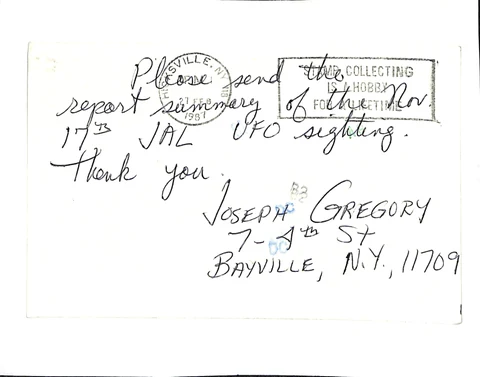 HICKSVILLE, NY
FEB
1987
STAMP COLLECTING
IS A HOBBY
FOR A LIFETIME
Please send the
report summary of the Nov.
17th JAL UFO sighting.
Thank you.
JOSEPH GREGORY
7-4th St
BAYVILLE, N.Y., 11709